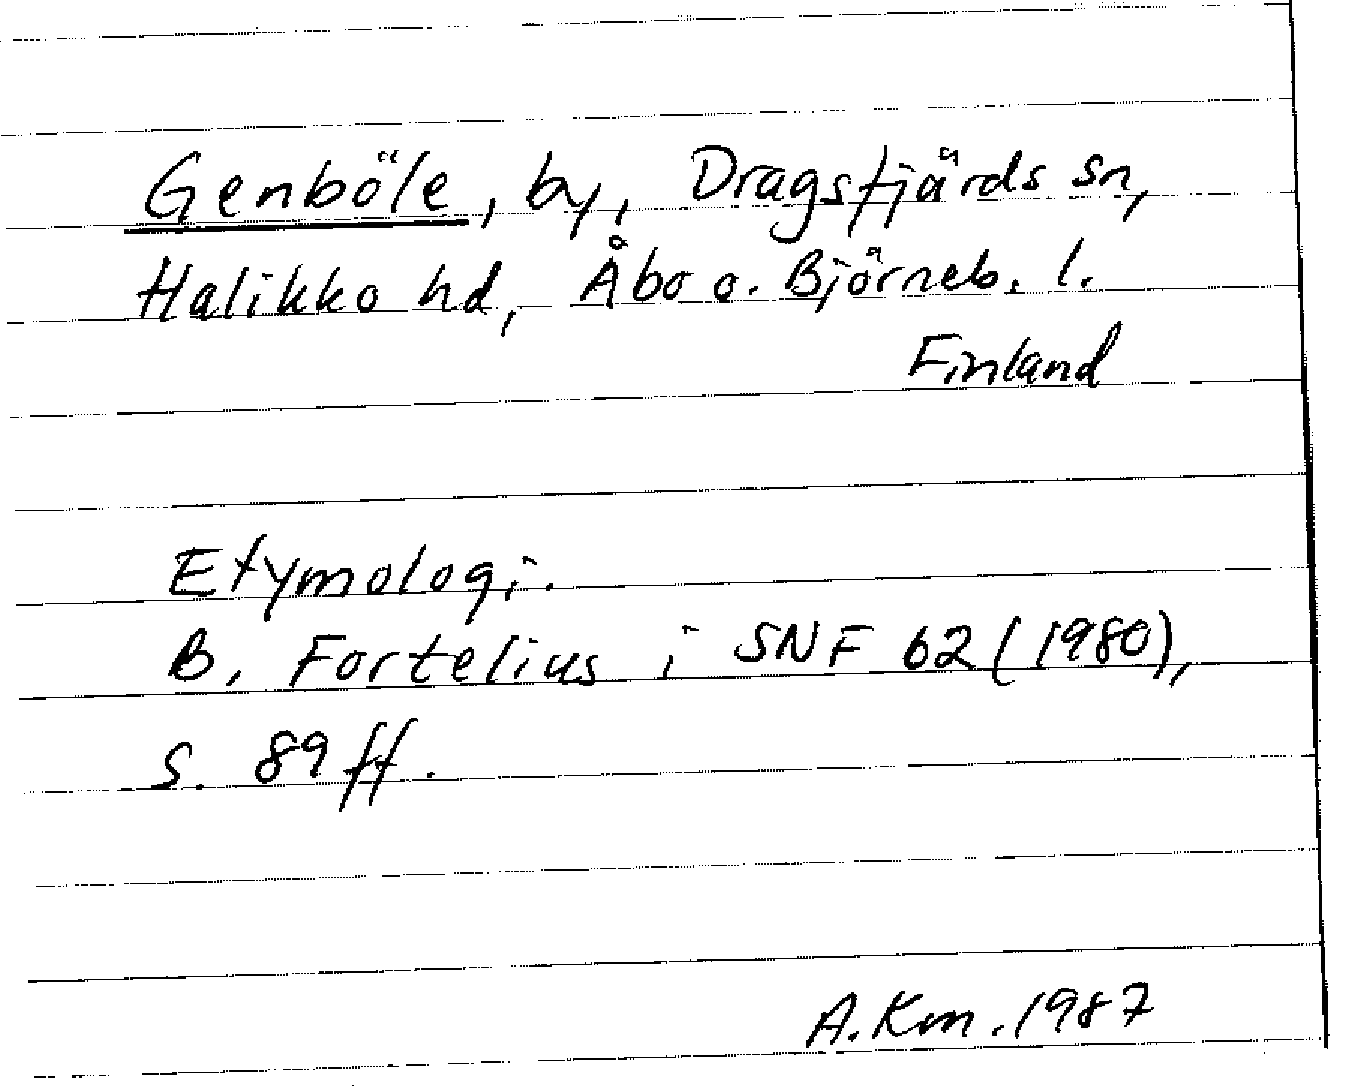 Genböle, by, Dragsfjärds sn,
Halikko hd, Åbo o. Björneb. l.
Finland
Etymologi.
B. Fortelius i SNF 62 (1980),
s. 89 ff.
A. Km. 1987